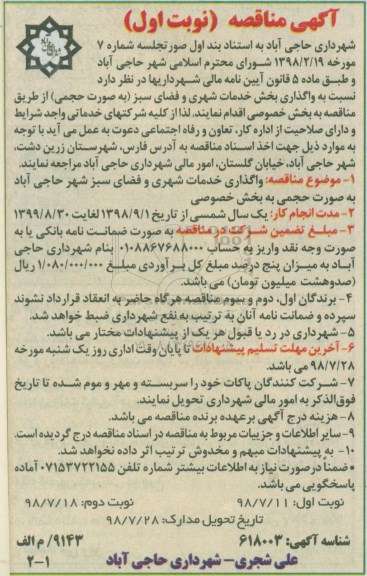 آگهی مناقصه (نوبت اول)
شهرداری حاجی آباد به استناد بند اول صورتجلسه شماره ۷
مورخه ۱۳۹۸/۲/۱۹ شورای محترم اسلامی شهر حاجی آباد
و طبق ماده ۵ قانون آیین نامه مالی شهرداریها در نظر دارد
نسبت به واگذاری بخش خدمات شهری و فضای سبز (به صورت حجمی) از طریق
مناقصه به بخش خصوصی اقدام نمایند. لذا از کلیه شرکتهای خدماتی واجد شرایط
و دارای صلاحیت از اداره کار، تعاون و رفاه اجتماعی دعوت به عمل می آید با توجه
به موارد ذیل جهت اخذ اسناد مناقصه به آدرس فارس، شهرستان زرین دشت،
شهر حاجی آباد، خیابان گلستان، امور مالی شهرداری حاجی آباد مراجعه نمایند.
۱- موضوع مناقصه: واگذاری خدمات شهری و فضای سبز شهر حاجی آباد
به صورت حجمی به بخش خصوصی
۲- مدت انجام کار: یک سال شمسی از تاریخ ۱۳۹۸/۹/۱ لغایت ۱۳۹۹/۸/۳۰
۳- مبلغ تضمین شرکت در مناقصه به صورت ضمانت نامه بانکی یا به
صورت وجه نقد واریز به حساب ۰۱۰۸۸۶۷۶۸۸۰۰۰ بنام شهرداری حاجی
آباد به میزان پنج درصد مبلغ کل برآوردی مبلغ ۱/۰۸۰/۰۰۰/۰۰۰ ریال
(صدوهشت میلیون تومان) می باشد.
۴- برندگان اول، دوم و سوم مناقصه هرگاه حاضر به انعقاد قرارداد نشوند
سپرده و ضمانت نامه آنان به ترتیب به نفع شهرداری ضبط خواهد شد.
۵- شهرداری در رد یا قبول هر یک از پیشنهادات مختار می باشد.
۶- آخرین مهلت تسلیم پیشنهادات تا پایان وقت اداری روز یک شنبه مورخه
۹۸/۷/۲۸ می باشد.
۷- شرکت کنندگان پاکات خود را سربسته و مهر و موم شده تا تاریخ
فوق‌الذکر به امور مالی شهرداری تحویل نمایند.
۸- هزینه درج آگهی برعهده برنده مناقصه می باشد.
۹- سایر اطلاعات و جزییات مربوط به مناقصه در اسناد مناقصه درج گردیده است.
۱۰- به پیشنهادات مبهم و مخدوش ترتیب اثر داده نخواهد شد.
*ضمنا در صورت نیاز به اطلاعات بیشتر شماره تلفن ۰۷۱۵۳۷۲۲۱۵۵ آماده
پاسخگویی می باشد.
نوبت اول: ۹۸/۷/۱۱ نوبت دوم: ۹۸/۷/۱۸
تاریخ تحویل مدارک: ۹۸/۷/۲۸
شناسه آگهی: ۶۱۸۰۰۳ ۹۱۴۳/ م الف
علی شجری- شهرداری حاجی آباد ۲-۱